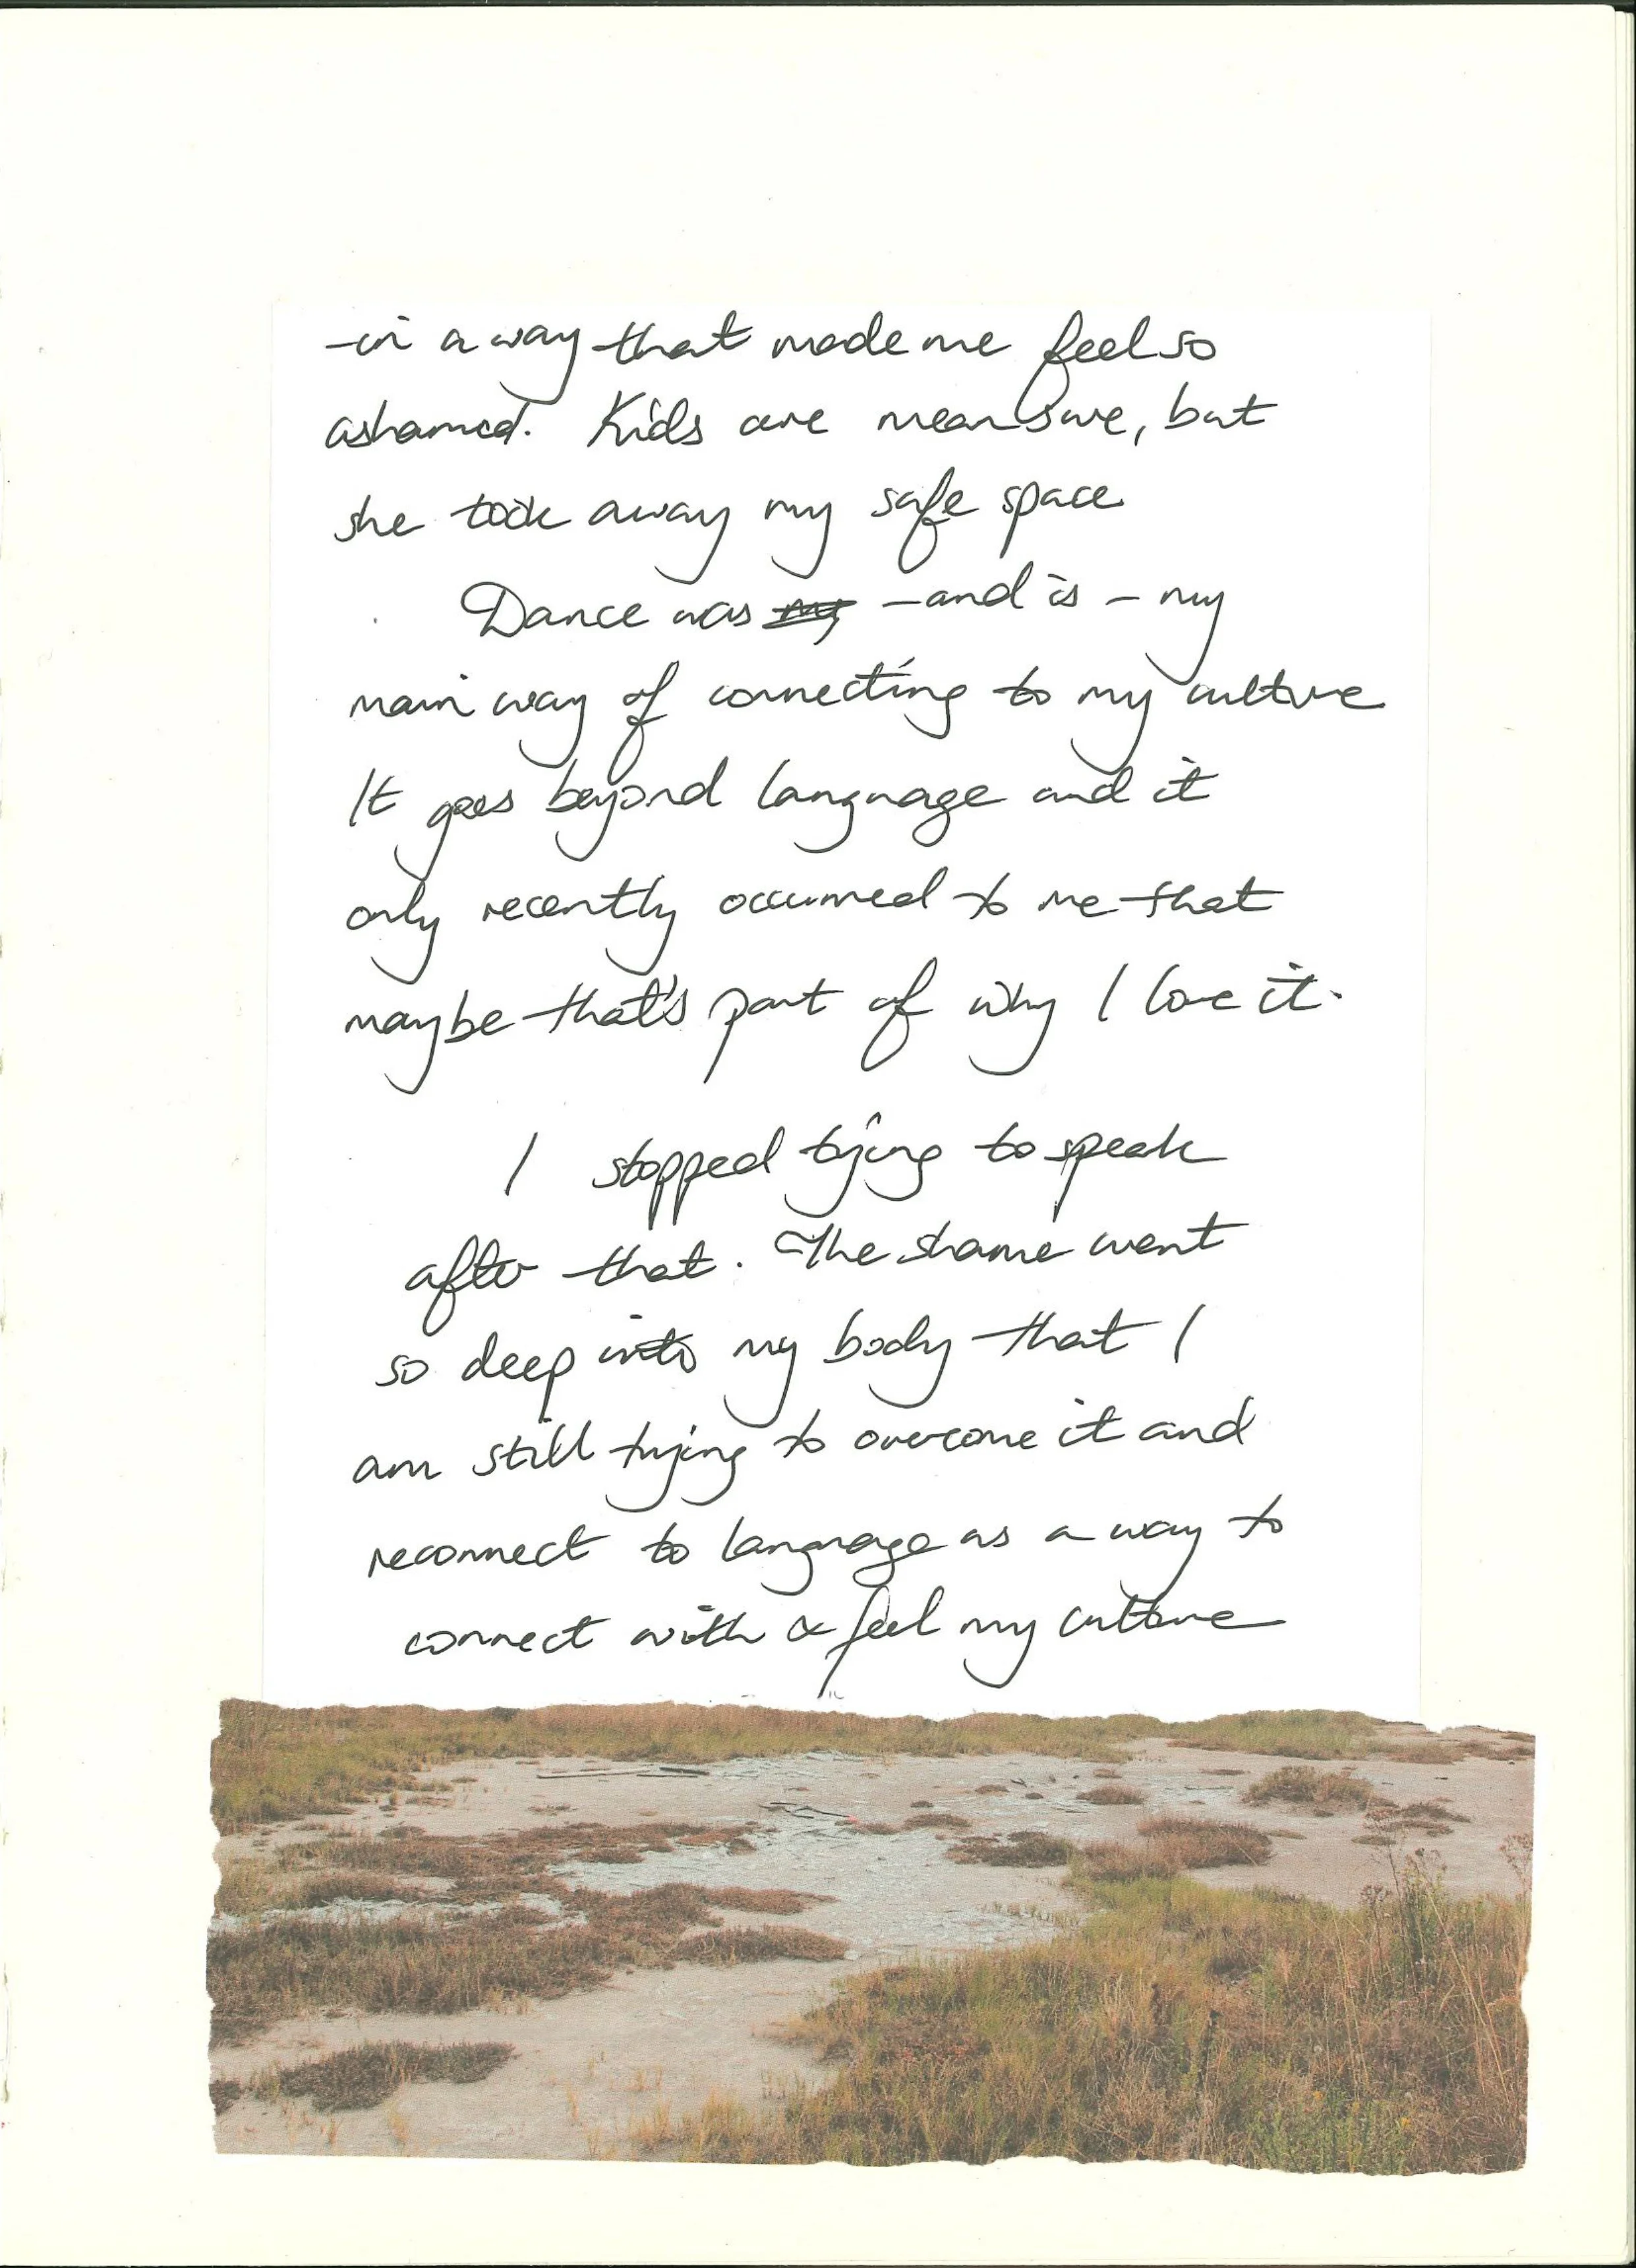 -in a way that made me feel so
ashamed. Kids are mean sure, but
she took away my safe space
Dance was my - and is - my
main way of connecting to my culture
It goes beyond language and it
only recently occurred to me that
maybe that's part of why I love it.
I stopped trying to speak
after that. The shame went
so deep into my body that I
am still trying to overcome it and
reconnect to language as a way to
connect with & feel my culture